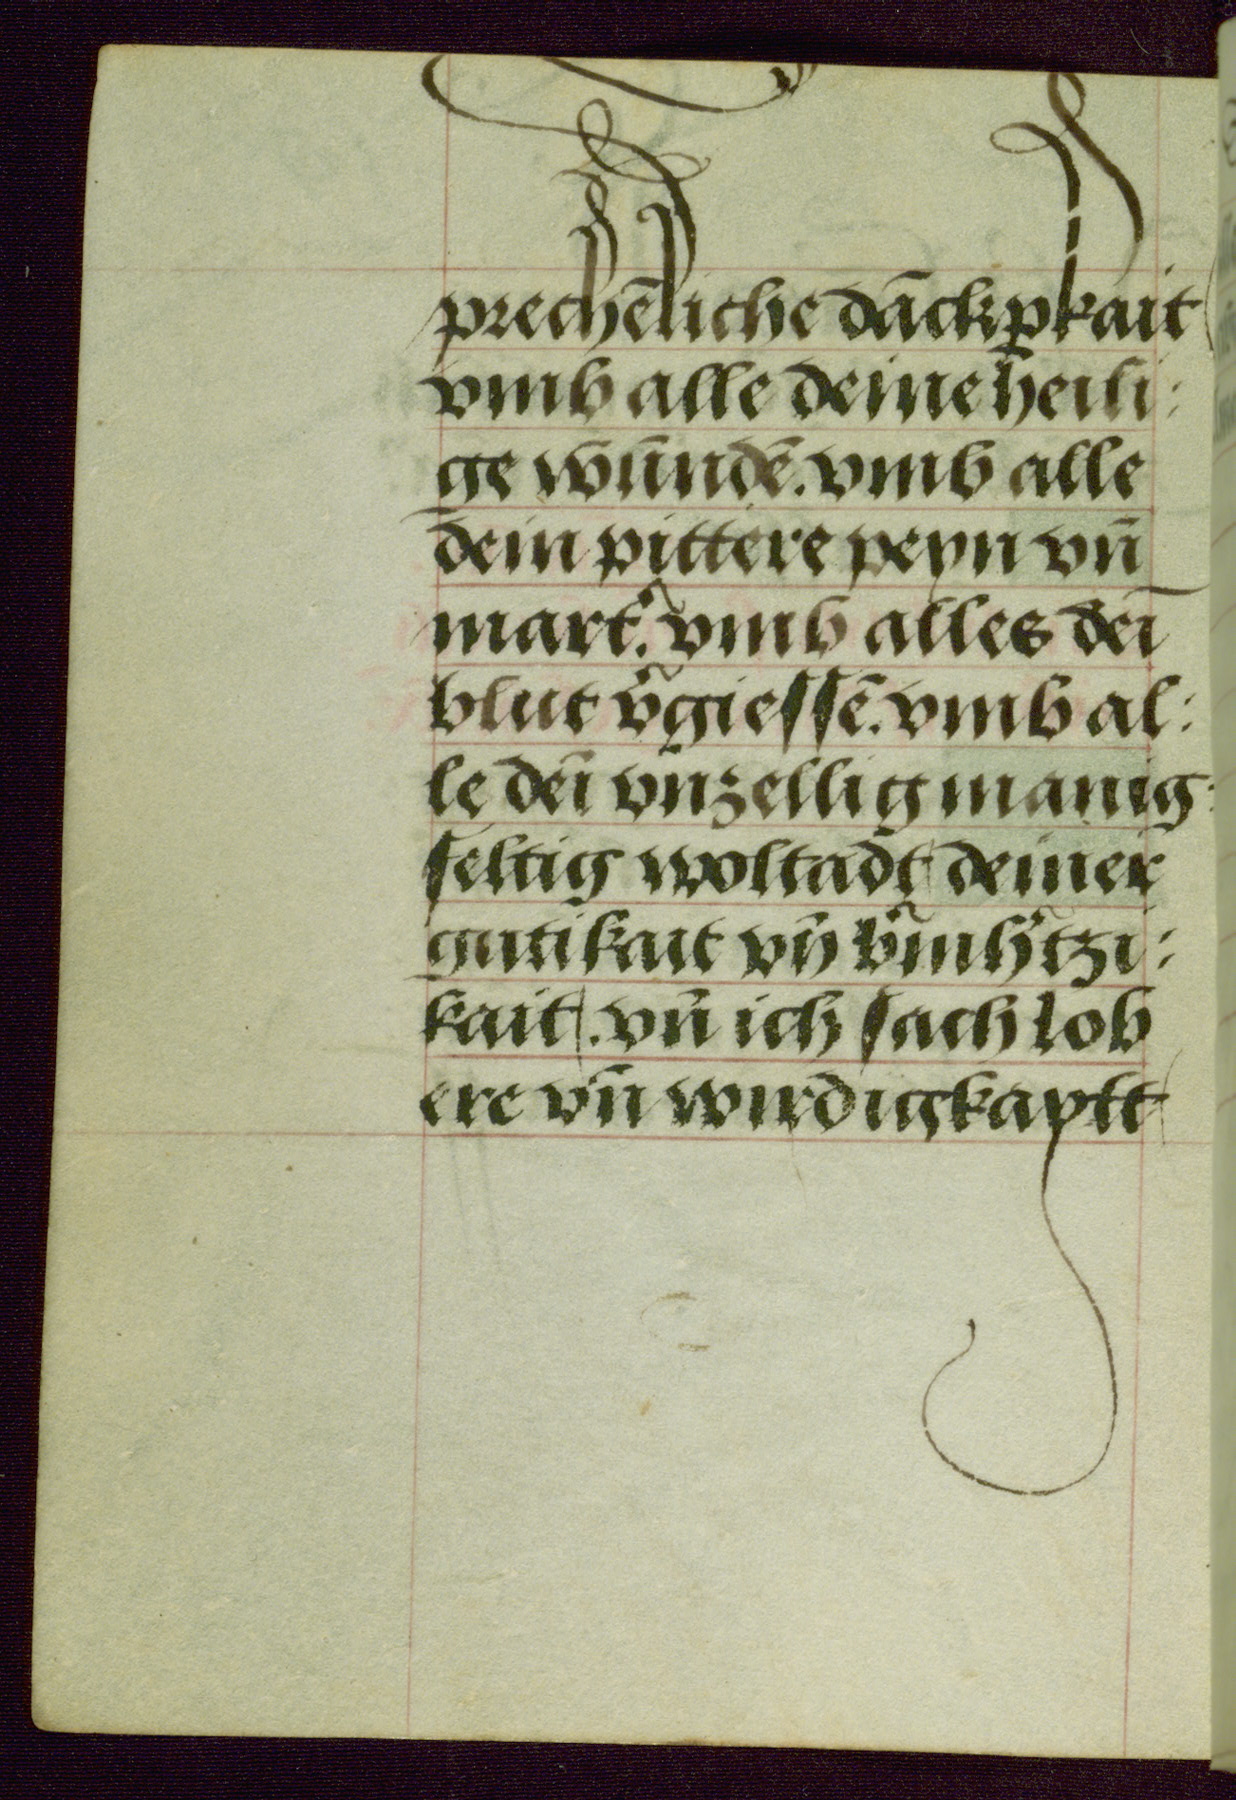 prechēliche dāckꝑkait
vmb alle deine heili:
ge wūndē. vmb alle
dein pittere peyn vn̄
mart̓. vmb alles dei̅
blut v̓giessē. vmb al:
le dei̅ vnzellig manig:
feltig woltadt deiner
gutikait vn̄ v̓mh̓tzi:
kait. vn̄ ich sach lob
ere vn̄ wirdigkaytt